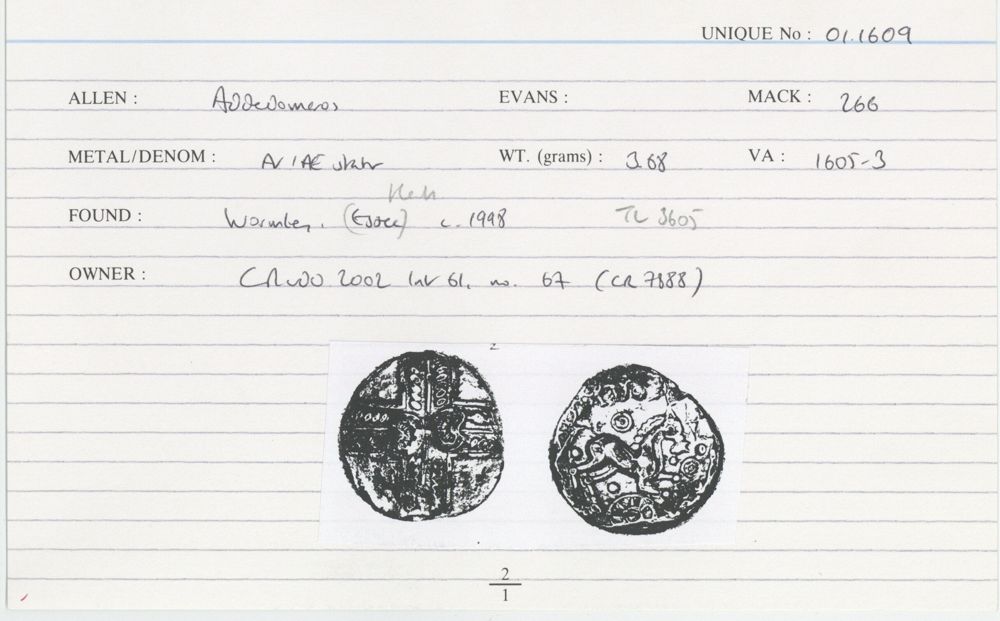 UNIQUE No : 01.1609
ALLEN : Addedomaros EVANS : MACK : 266
METAL/DENOM : AV/AE stater WT. (grams) : 3.68 VA : 1605-3
Herts
FOUND : Wormley, (Essex) c. 1998 TL 3605
OWNER : CR 2002 Inv 61, no. 67 (CR 7888)
2
2
1